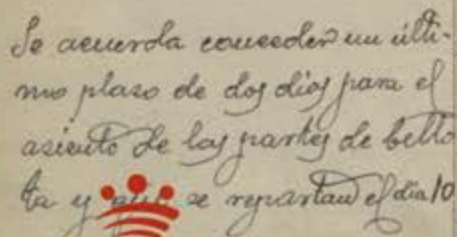 Se acuerda conceder un últi-
mo plaso de dos dios para el
asiento de las partes de bello
ta y que se repartan el dia 10